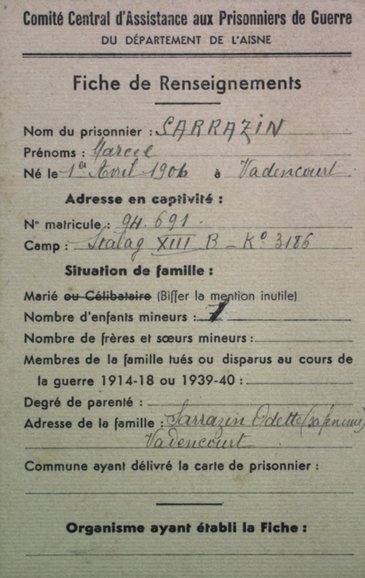 Comité Central d'Assistance aux Prisonniers de Guerre
DU DÉPARTEMENT DE L'AISNE
Fiche de Renseignements
Nom du prisonnier : SARRAZIN
Prénoms : Marcel
Né le 1er Avril 1906 à Vadencourt
Adresse en captivité :
No matricule : 94.691.
Camp : Stalag XIII B - Ko 3186
Situation de famille :
Marié ou Célibataire (Biffer la mention inutile)
Nombre d'enfants mineurs : 1
Nombre de frères et sœurs mineurs :
Membres de la famille tués ou disparus au cours de
la guerre 1914-18 ou 1939-40 :
Degré de parenté :
Adresse de la famille : Sarrazin Odette (sa femme)
Vadencourt
Commune ayant délivré la carte de prisonnier :
Organisme ayant établi la Fiche :